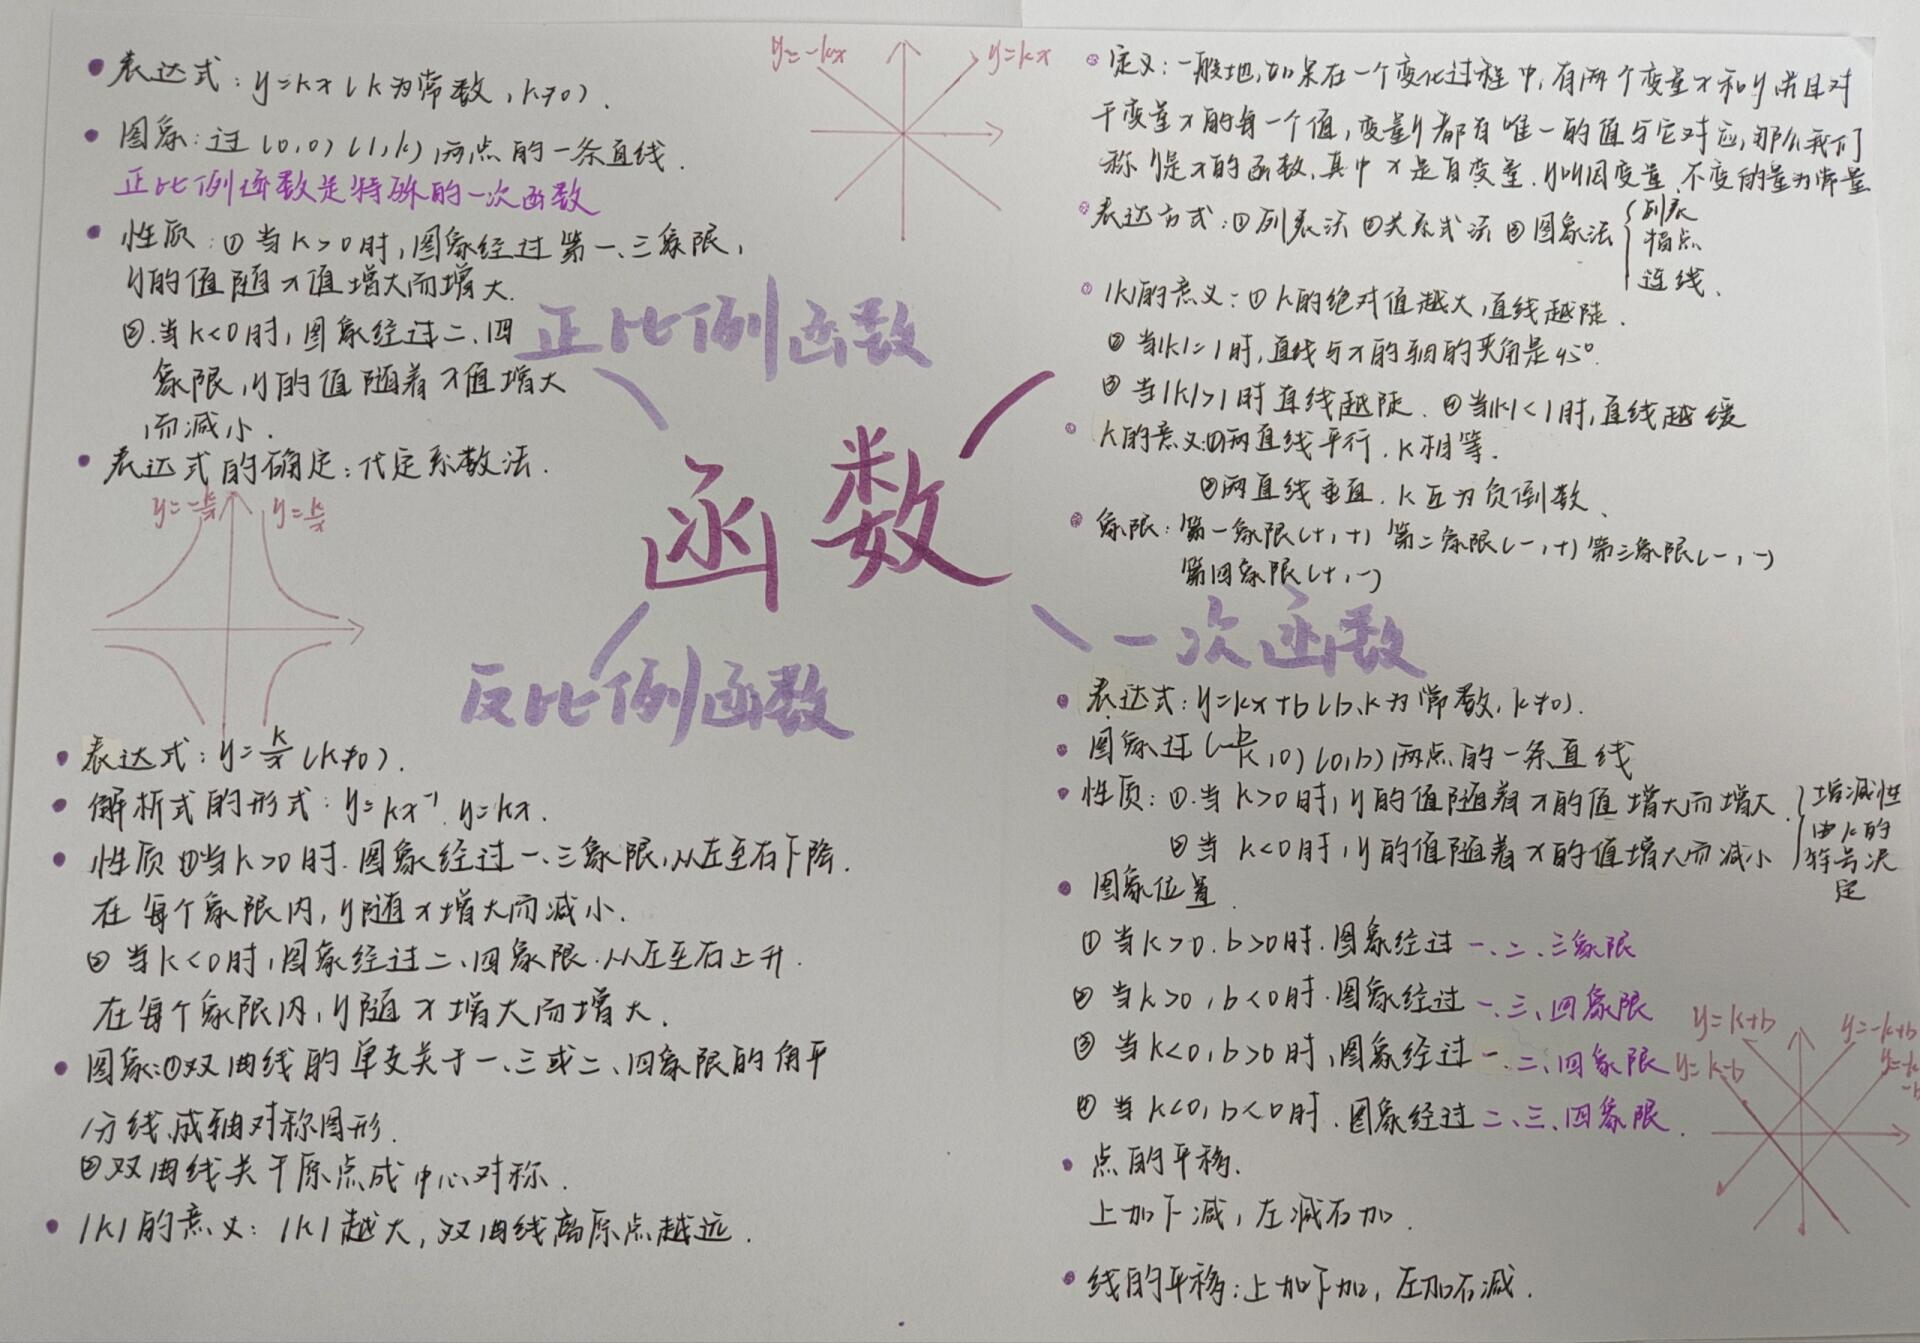 函数
正比例函数
• 表达式：y=kx（k为常数，k≠0）.
• 图象：过（0,0）（1,k）两点的一条直线.
正比例函数是特殊的一次函数
• 性质：① 当k>0时，图象经过第一、三象限，
y的值随x值增大而增大.
②.当k<0时，图象经过二、四
象限，y的值随着x值增大
而减小.
• 表达式的确定：代定系数法.
y=-kx
y=kx
定义：一般地，如果在一个变化过程中，有两个变量x和y，并且对
于变量x的每一个值，变量y都有唯一的值与它对应，那么我们
称y是x的函数，其中x是自变量.y叫因变量.不变的量为常量
表达方式：①列表法 ②关系式法 ③图象法 { 列表
描点
连线.
|k|的意义：① k的绝对值越大，直线越陡.
② 当|k|=1时，直线与x的轴的夹角是45°.
③ 当|k|>1时直线越陡. ④当|k|<1时，直线越缓
k的意义：①两直线平行.k相等.
②两直线垂直.k互为负倒数.
象限：第一象限（+,+）第二象限（-,+）第三象限（-,-）
第四象限（+,-）
y=-k/x
y=k/x
反比例函数
• 表达式：y=k/x（k≠0）.
• 解析式的形式：y=kx⁻¹. y=kx.
• 性质 ①当k>0时.图象经过一、三象限，从左至右下降.
在每个象限内，y随x增大而减小.
② 当k<0时，图象经过二、四象限.从左至右上升.
在每个象限内，y随x增大而增大.
• 图象：①双曲线的单支关于一、三或二、四象限的角平
分线，成轴对称图形.
②双曲线关于原点成中心对称.
• |k|的意义：|k|越大，双曲线离原点越远.
一次函数
• 表达式：y=kx+b（b、k为常数，k≠0）.
• 图象过（-b/k,0）（0,b）两点的一条直线
• 性质：①.当k>0时，y的值随着x的值增大而增大.
② 当k<0时，y的值随着x的值增大而减小
} 增减性
由k的
符号决
定
• 图象位置.
① 当k>0.b>0时.图象经过一、二、三象限
② 当k>0，b<0时.图象经过一、三、四象限
③ 当k<0，b>0时，图象经过一、二、四象限
④ 当k<0，b<0时.图象经过二、三、四象限.
y=k+b
y=-k+b
y=k-b
y=-k
-b
• 点的平移.
上加下减，左减右加.
• 线的平移：上加下加，左加右减.